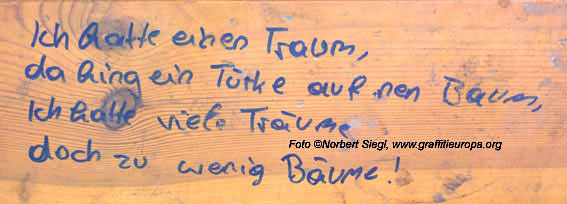 Ich hatte einen Traum,
da hing ein Türke auf nen Baum,
Ich hatte viele Träume
Foto ©Norbert Siegl, www.graffitieuropa.org
doch zu wenig Bäume!